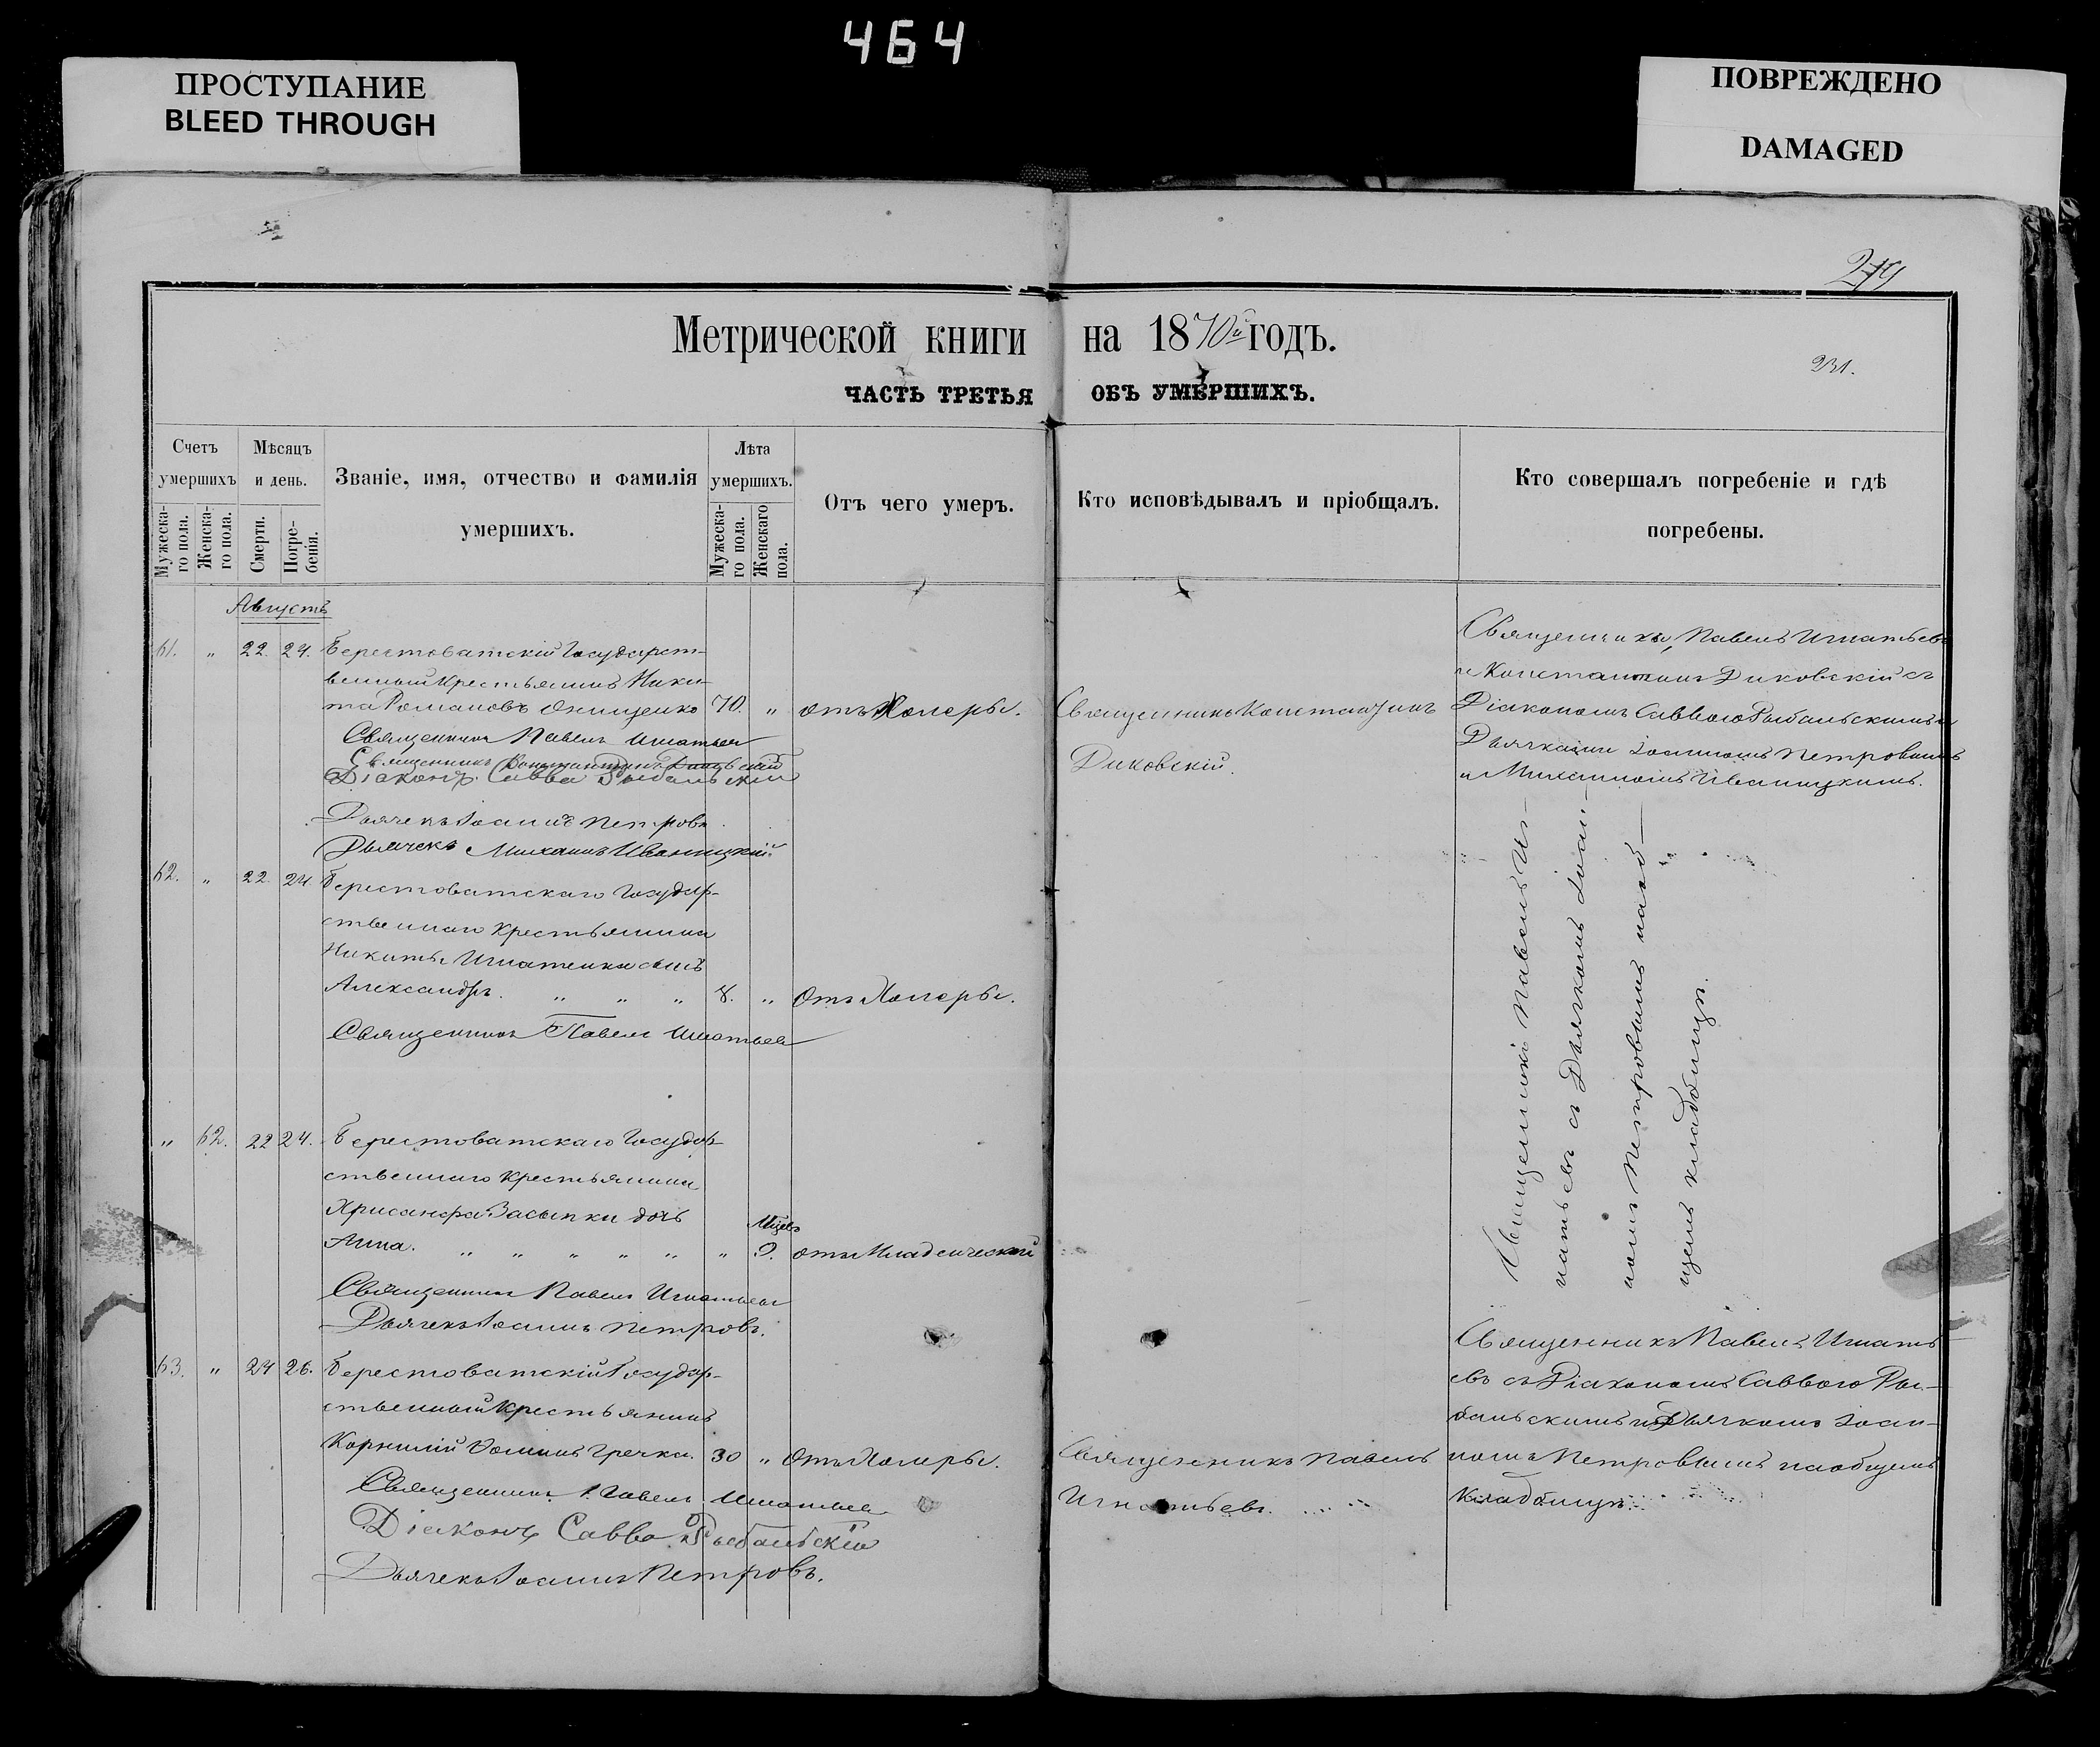 464
ПРОСТУПАНИЕ
BLEED THROUGH
ПОВРЕЖДЕНО
DAMAGED
231.
Метрической книги на 1870й годъ.
ЧАСТЬ ТРЕТЬЯ ОБЪ УМЕРШИХЪ.
Счетъ умершихъ
Мужеска-го пола.
Женска-го пола.
Мѣсяцъ и день.
Смерти.
Погре-бенія.
Званіе, имя, отчество и фамилія умершихъ.
Лѣта умершихъ.
Мужеска-го пола.
Женскаго пола.
Отъ чего умеръ.
Кто исповѣдывалъ и пріобщалъ.
Кто совершалъ погребеніе и гдѣ погребены.
Августъ
61. „ 22. 24. Берестоватскій Государст-
венный Крестьянинъ Ники-
та Романовъ Онищенко 70. „ отъ Холеры.
Священникъ Константинъ
Диковскій.
Священники, Павелъ Игнатьевъ
и Константинъ Диковскій съ
Діакономъ Саввою Рыбальскимъ и
Дьячками Іоанномъ Петровымъ
и Михаиломъ Иваницкимъ.
Священникъ Павелъ Игнатьевъ
Священникъ Константинъ Диковскій
Діаконъ Савва Рыбальскій
Дьячекъ Іоаннъ Петровъ
Дьячекъ Михаилъ Иваницкій.
62. „ 22. 24. Берестоватскаго Государ-
ственнаго Крестьянина
Никиты Игнатенка сынъ
Александръ. „ „ „ 8. „ Отъ Холеры.
Священникъ Павелъ Игнатьевъ
Священникъ Павелъ Иг-
натьевъ съ Дьячкомъ Іоан-
номъ Петровымъ на об-
щемъ кладбищѣ.
„ 62. 22 24. Берестоватскаго Государ-
ственнаго Крестьянина
Хрисанфа Засыпки дочь
Мцевъ
Анна. „ „ „ „ „ „ 9. отъ Младенческой
Священникъ Павелъ Игнатьевъ
Дьячекъ Іоаннъ Петровъ.
63. „ 24 26. Берестоватскій Государ-
ственный Крестьянинъ
Корнилій Гречка. 30 „ Отъ Холеры.
Священникъ Павелъ
Игнатьевъ.
Священникъ Павелъ Игнать
евъ съ Діакономъ Саввою Ры-
бальскимъ и Дьячкомъ Іоан-
номъ Петровымъ на общемъ
Кладбищѣ.
Священникъ Павелъ Игнатьевъ
Діаконъ Савва Рыбальскій
Дьячекъ Іоаннъ Петровъ.